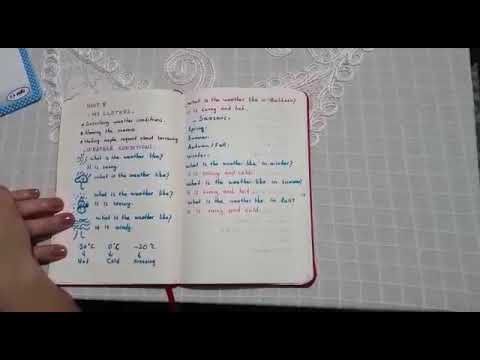 UNIT 8
MY CLOTHES
• Describing weather conditions.
• Naming the seasons
• Making simple request about borrowing
WEATHER CONDITIONS
what is the weather like?
It is sunny.
what is the weather like?
what is the weather like?
It is snowy.
what is the weather like?
It is windy.
30°C 0°C -20°C
Hot Cold Freezing
what is the weather like in
It is sunny and hot.
Seasons:
Spring:
Summer:
Autumn / Fall:
Winter:
what is the weather like in winter?
It is and cold.
what is the weather like in summer
It is sunny and hot
what is the weather like in
It is and cold.